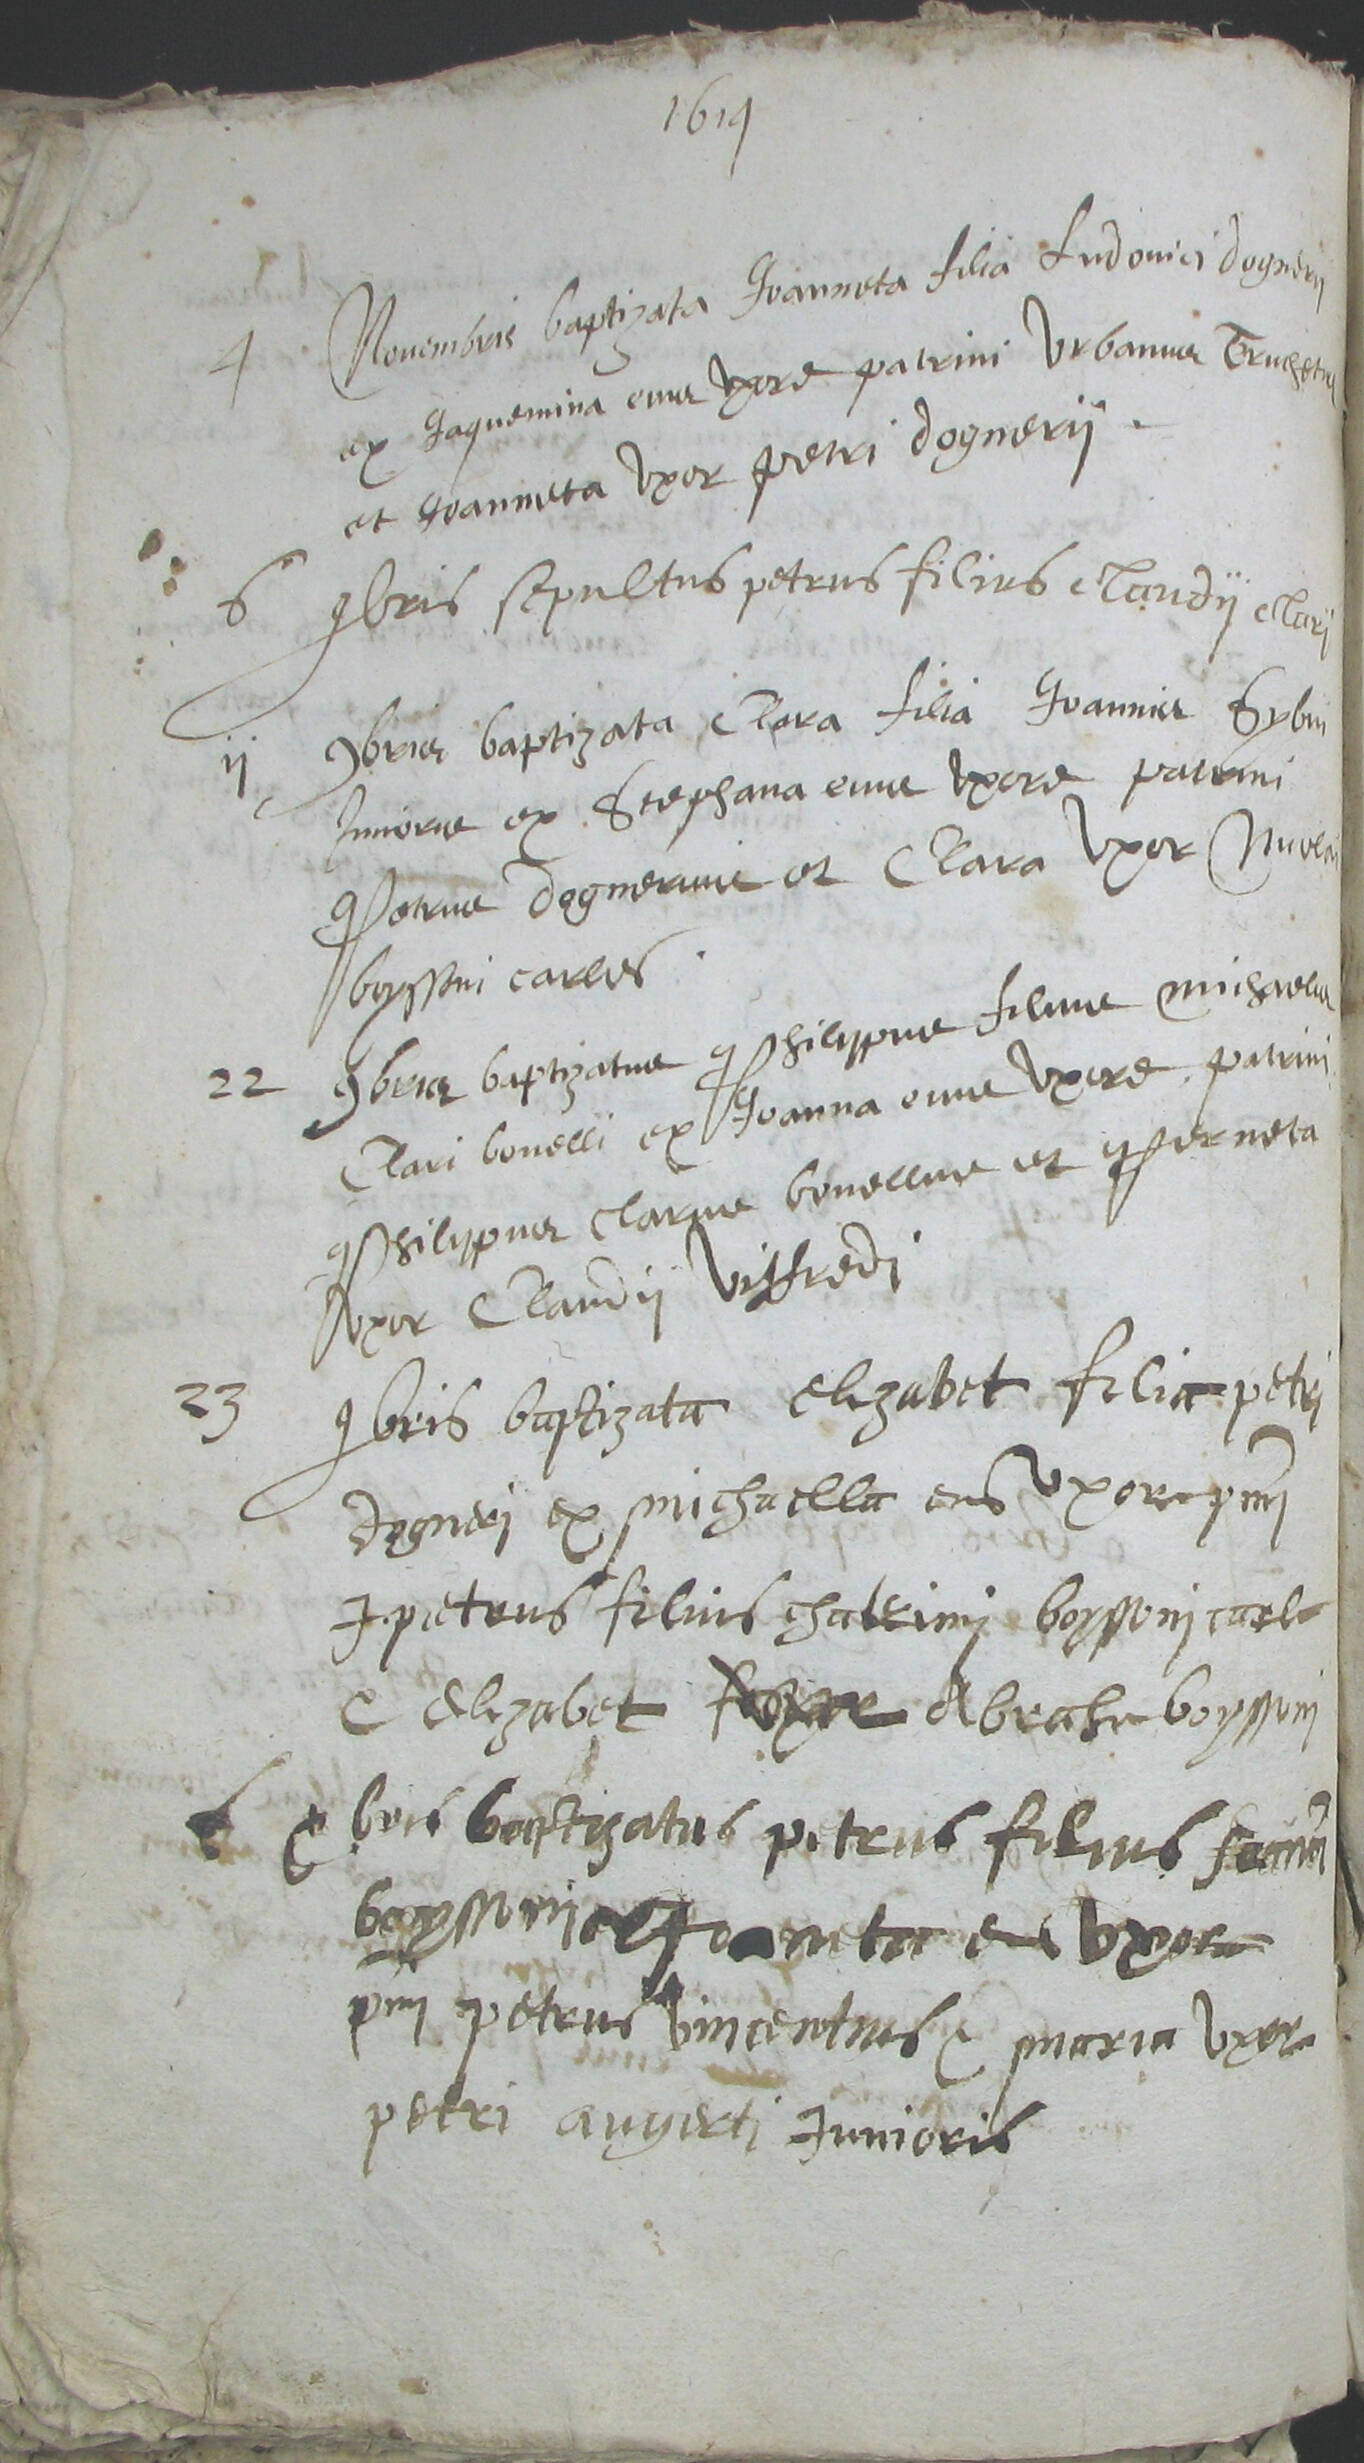 1614
4 Novembris baptizata Joanneta filia Ludovici dognerii
ex Jaquemina eius uxore patrini Urbanus Truchetus
et Joanneta uxor petri dognerij .
6 9bris sepultus petrus filius claudij clarij
ij 9bris baptizata Clara filia Joannis Sybu
Junioris ex Stephana eius uxore patrini
Petrus dognerius et Clara uxor Nicolai
boyssoni carles .
22 9bris baptizatus Philippus filius michaelis
Clari bonelli ex Joanna eius uxore patrini
Philippus clarus bonellus et Perneta
uxor Claudij Viffredi
23 9bris baptizata Elizabet filia petri
dognerj ex michaella eius uxore pnj
petrus filius boyssonj carles
& Elizabet Abrahe boyssonj
6 Xbris baptizatus petrus filius
boyssonij ex Joaneta eius uxore
pnj petrus vincentius & maria uxor
petri augerti Junioris